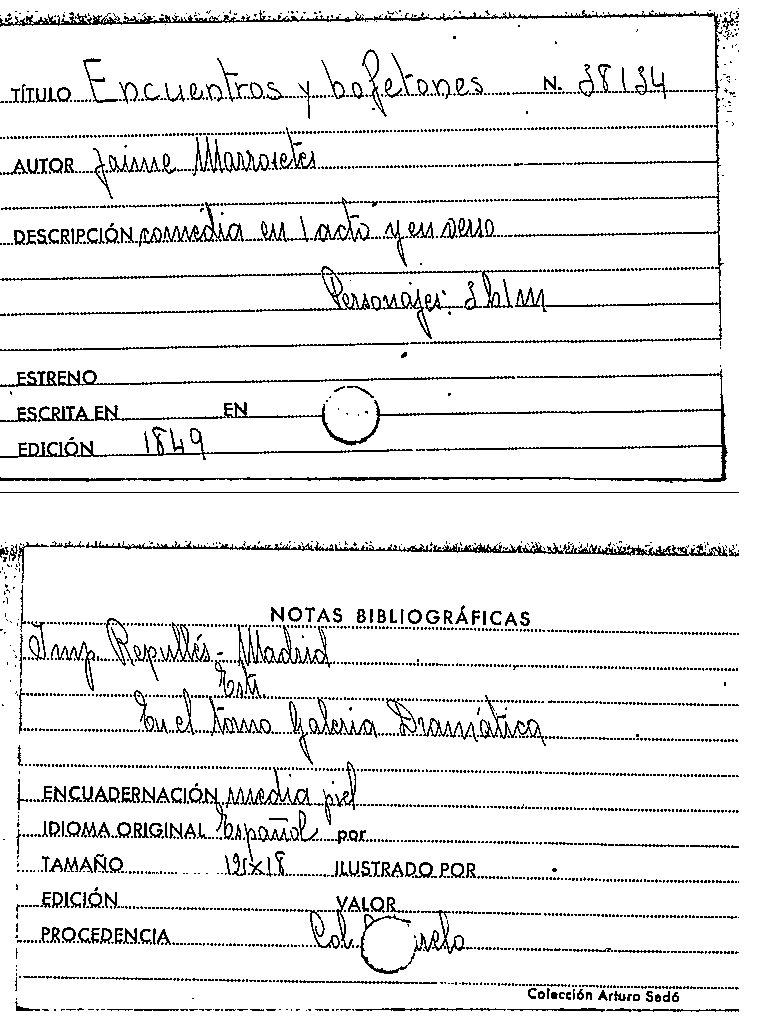 TÍTULO Encuentros y bofetones N. 38134
AUTOR Jaime Marrosetes
DESCRIPCIÓN comedia en 1 acto y en verso
Personajes: 3h 1m
ESTRENO
ESCRITA EN EN
EDICIÓN 1849
NOTAS BIBLIOGRÁFICAS
Imp Repullés - Madrid
En el tomo Galeria Dramática
ENCUADERNACIÓN media piel
IDIOMA ORIGINAL Español por
TAMAÑO ILUSTRADO POR
EDICIÓN VALOR
PROCEDENCIA Col.
Colección Arturo Sedó